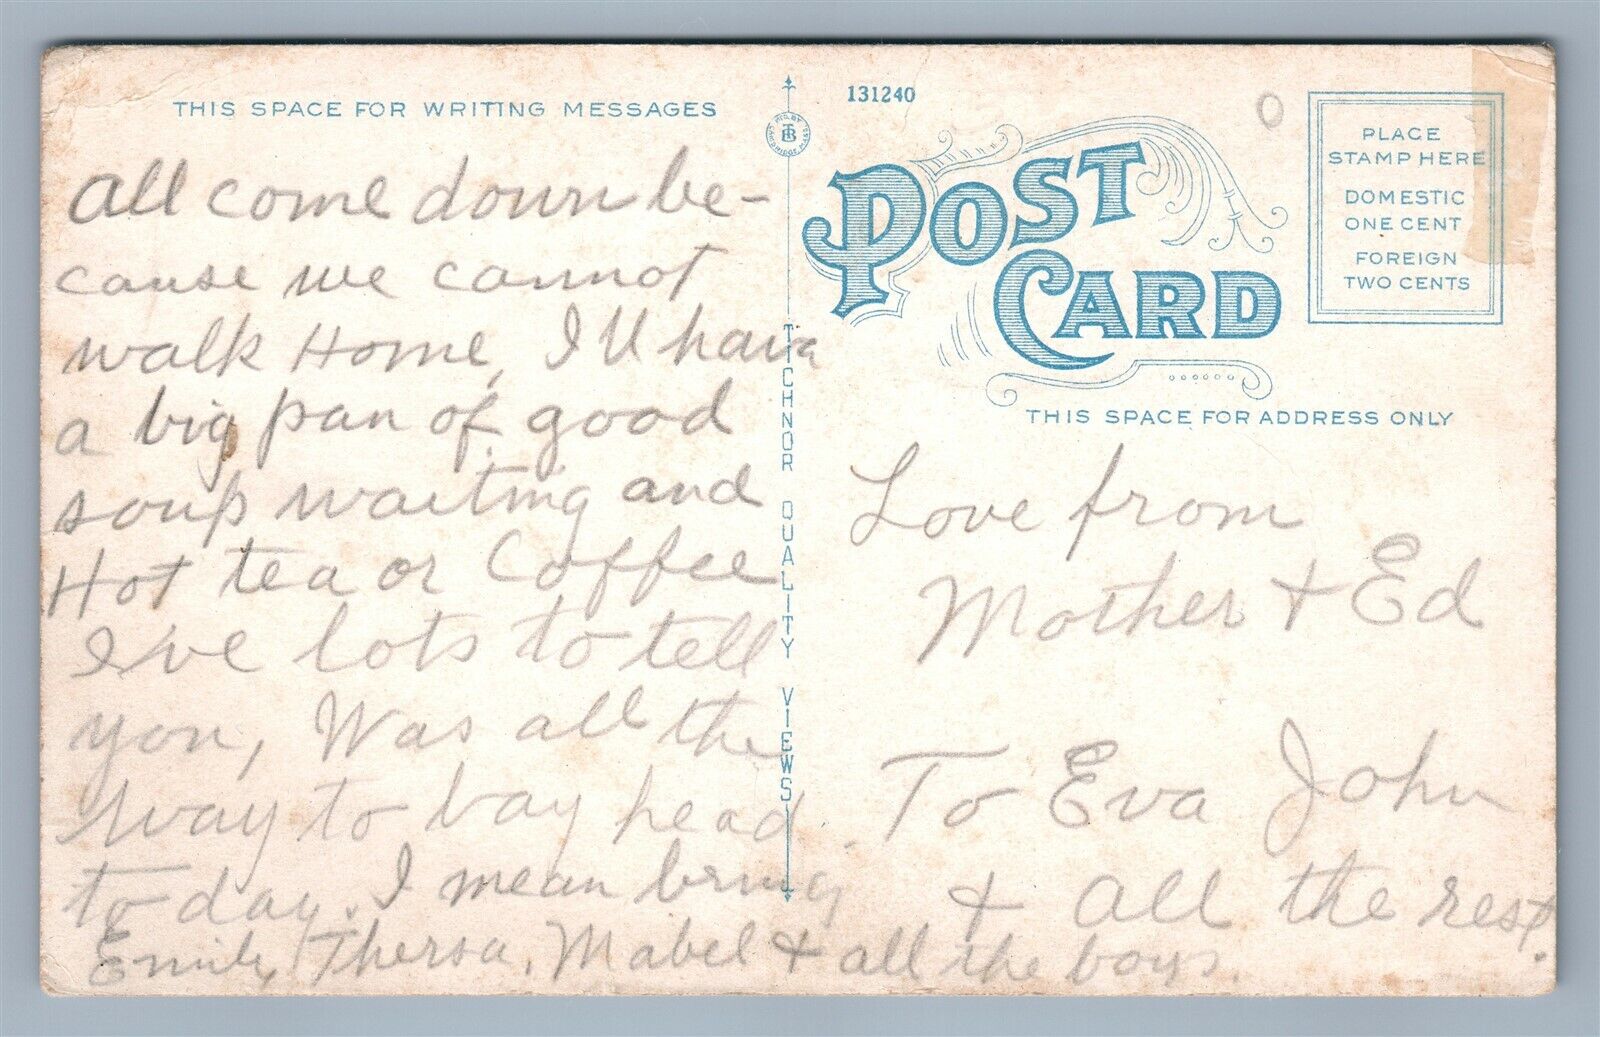 THIS SPACE FOR WRITING MESSAGES
all come down be-
cause we cannot
walk Home, I'll have
a big pan of good
soup waiting and
Hot tea or Coffee
I've lots to tell
you, Was all the
way to bay head
to day. I mean bring
Emile, Thersa, Mabel + all the boys.
MFD. BY
TB
CAMBRIDGE, MASS.
TICHNOR QUALITY VIEWS
131240
POST CARD
PLACE
STAMP HERE
DOMESTIC
ONE CENT
FOREIGN
TWO CENTS
THIS SPACE FOR ADDRESS ONLY
Love from
Mother + Ed
To Eva John
+ all the rest.